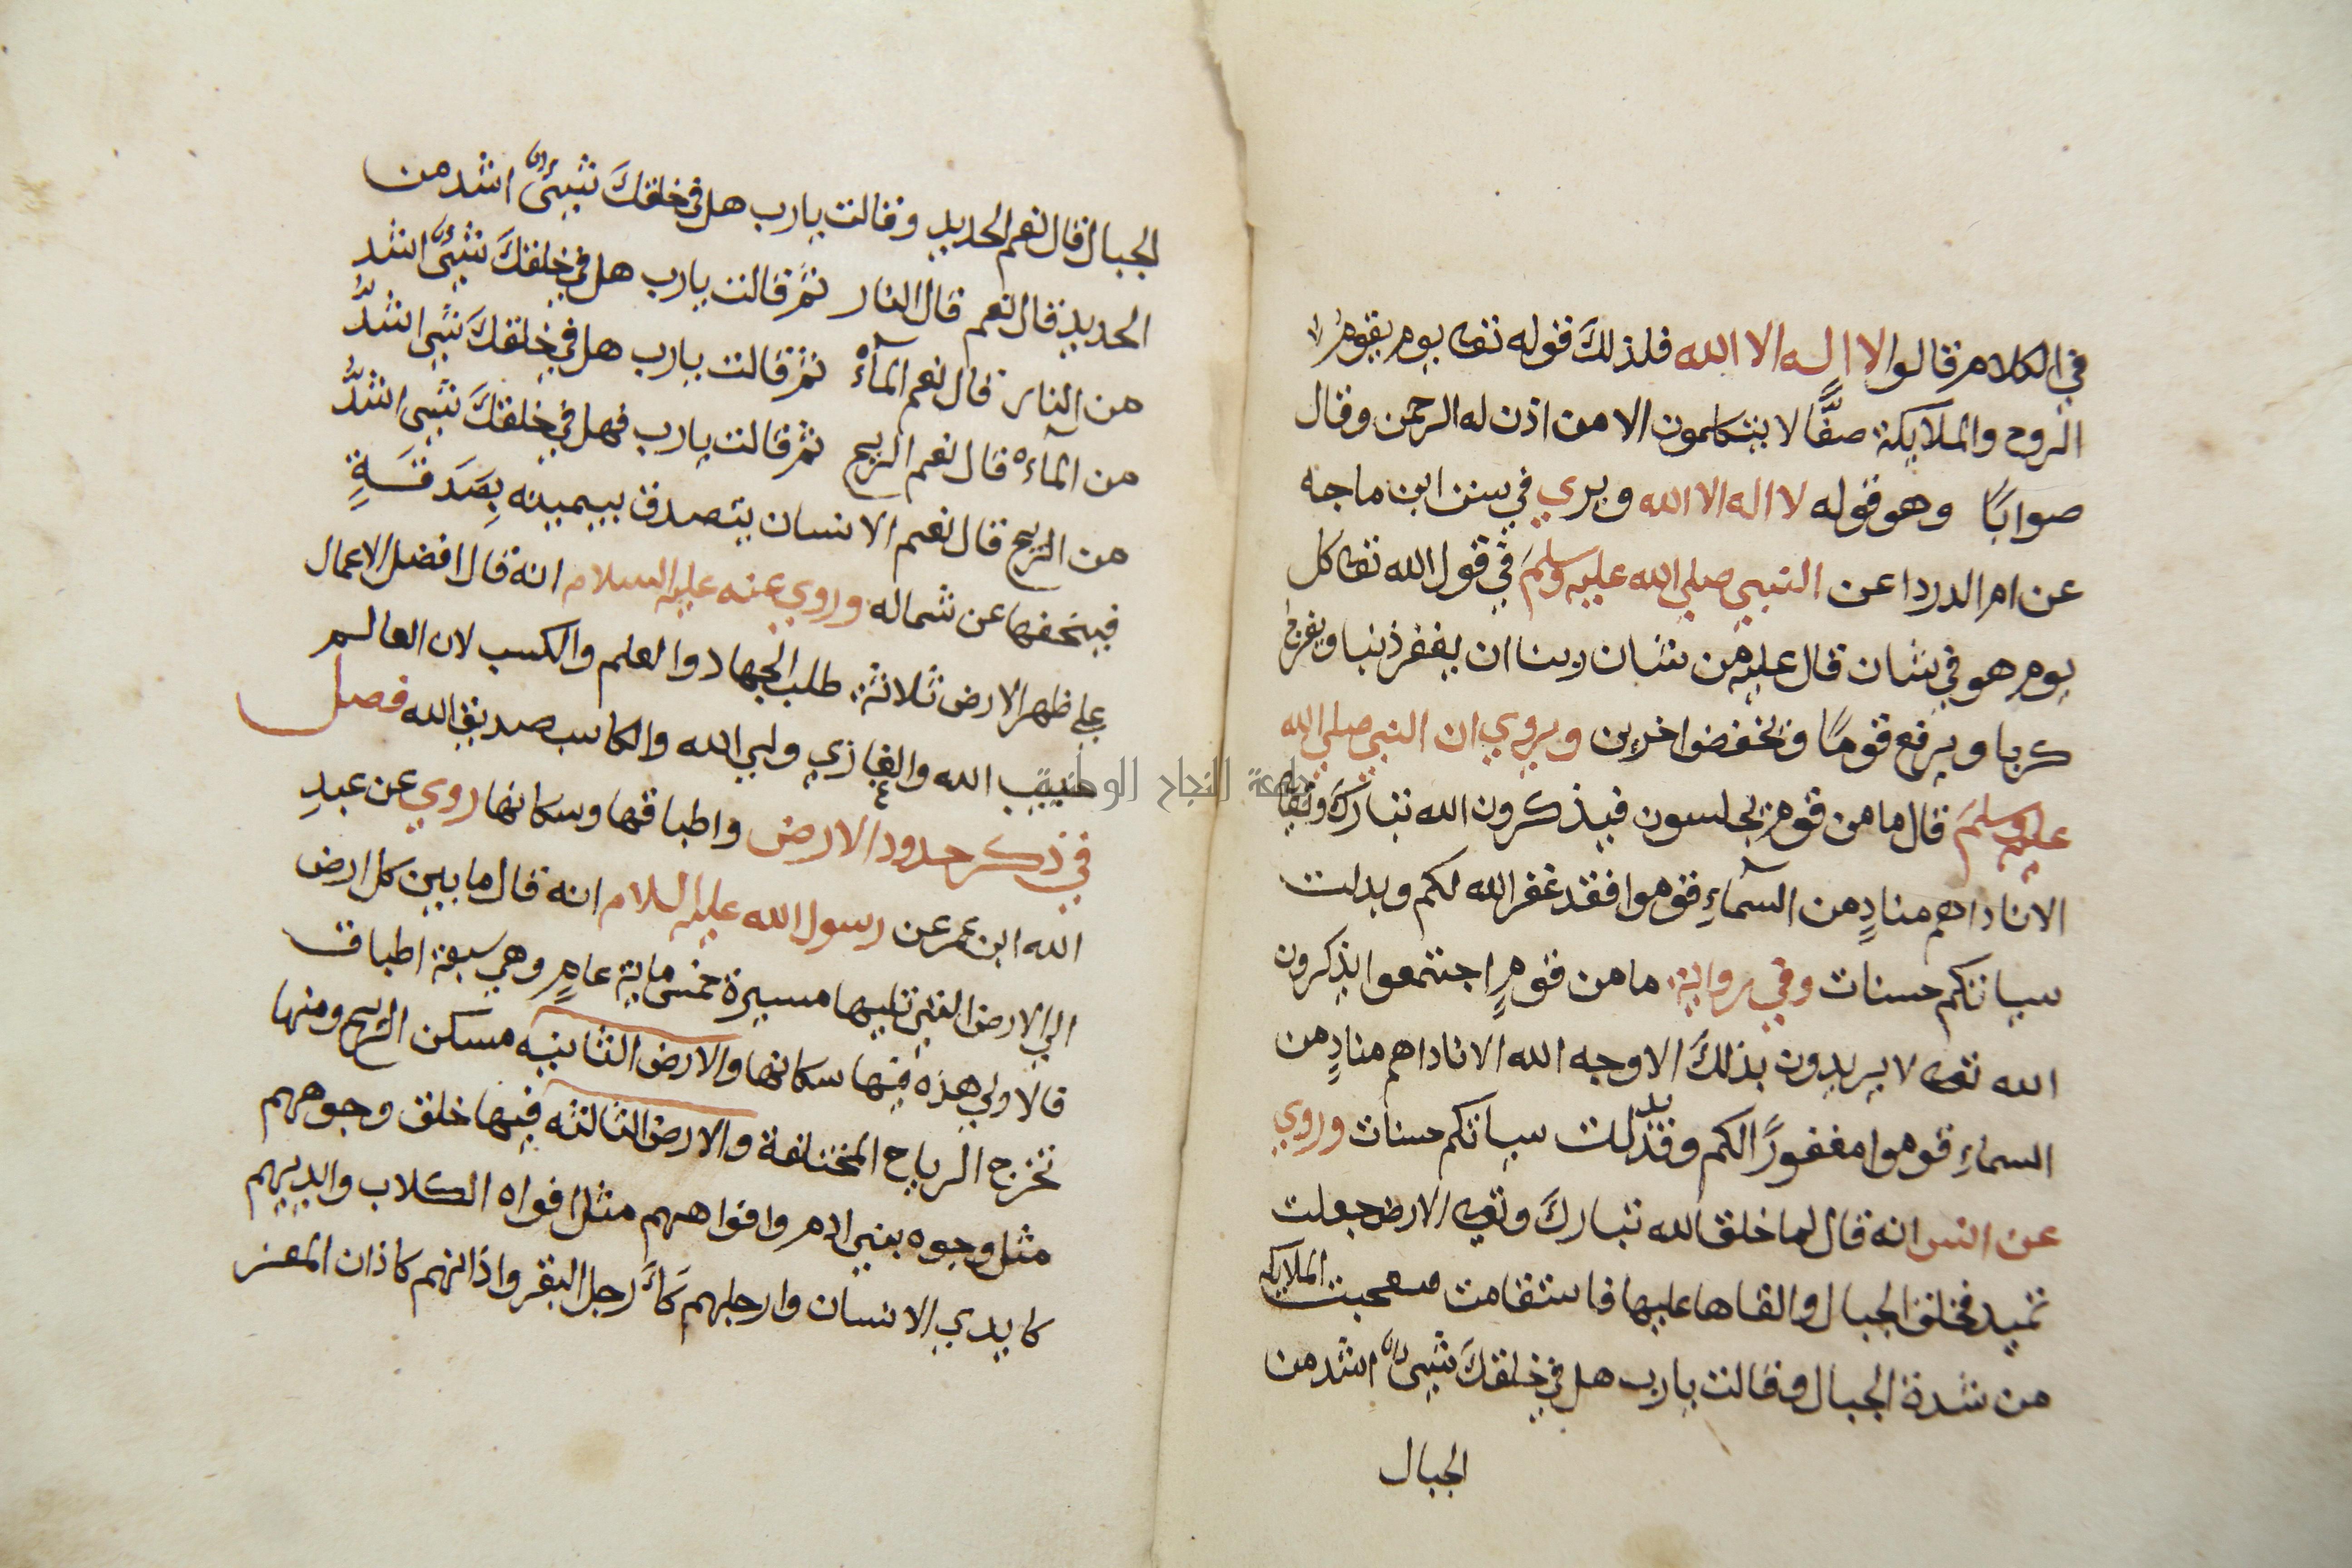 في الكلام قالوا لا اله الا الله فلذلكَ قوله تعالى يوم يقومُ
الروح والملآيكة صفًّا لا يتكلمون الا من اذن له الرحمن وقال
صوابًا وهو قوله لا اله الا الله ويري في سنن ابن ماجه
عن ام الدردا عن النبي صلي الله عليه وسلمَ في قول الله تعالى كل
يوم هو في شان قال عليه من شان ربنا ان يغفر ذنبا ويفرج
كربا ويرفع قومًا ويخفض اخرين ويروي ان النبي صلي الله
عليه وسلمَ قال ما من قوم يجلسون فيذكرون الله تباركَ وتعالى
الا ناداهم منادٍ من السمآءِ قوموا فقد غفر الله لكم وبدلت
سياتكم حسنات وفي رواية ما من قومٍ اجتمعوا يذكرون
الله تعالى لا يريدون بذلكَ الا وجه الله الا ناداهم منادٍ من
السماءِ قوموا مغفورًا لكم وقد بدلت سياتكم حسنات وروي
عن انس انه قال لما خلق الله تباركَ وتعالى الارض جعلت
تميد فخلق الجبال والقاها عليها فاستقامت فتعجبت الملايكه
من شدة الجبال وقالت يارب هل في خلقكَ شيئ اشد من
الجبال
الجبال قال نعم الحديد وقالت يارب هل في خلقكَ شيئ اشد من
الحديد قال نعم قال النار ثم قالت يارب هل في خلقكَ شيئ اشد
من النار قال نعم المآءُ ثم قالت يارب هل في خلقكَ شيى اشدُّ
من المآء قال نعم الريح ثم قالت يارب فهل في خلقكَ شيى اشدُّ
من الريح قال نعم الانسان يتصدق بيمينه بِصَدقَةٍ
فيخفها عن شماله وروي عنه عليه السلام انه قال افضل الاعمال
علي ظهر الارض ثلاثة طلب الجهاد والعلم والكسب لان العالم
حبيب الله والغازي ولي الله والكاسب صديق الله فصل
في ذكر حدود الارض واطباقها وسكانها روي عن عبدِ
الله ابن عمر عن رسول الله عليه السلام انه قال ما بين كل ارض
الي الارض التي تليها مسيرة خمس ماية عامٍ وهي سبعة اطباق
فالاولي هذه فيها سكانها والارض الثانيه مسكن الريح ومنها
تخرج الرياح المختلفة والارض الثالثه فيها خلق وجوههم
مثل وجوه بني ادم وافواههم مثل افواه الكلاب وايديهم
كايدي الانسان وارجلهم كَاَرجل البقر واذانهم كاذان المعز
جامعة النجاح الوطنية